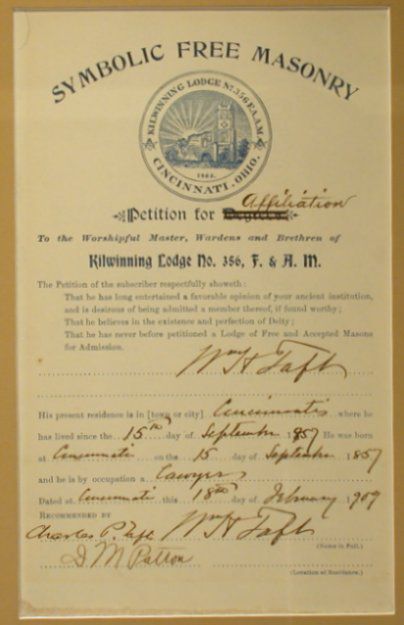 SYMBOLIC FREE MASONRY
KILWINNING LODGE No. 356 F. & A.M.
CINCINNATI, OHIO.
Affiliation
Petition for Degrees
To the Worshipful Master, Wardens and Brethren of
Kilwinning Lodge No. 356, F. & A. M.
The Petition of the subscriber respectfully showeth:
That he has long entertained a favorable opinion of your ancient institution,
and is desirous of being admitted a member thereof, if found worthy;
That he believes in the existence and perfection of Deity;
That he has never before petitioned a Lodge of Free and Accepted Masons
for Admission.
Wm H Taft
His present residence is in [town or city] Cincinnati where he
has lived since the 15th day of September 1857 He was born
at Cincinnati on the 15 day of September 1857
and he is by occupation a Lawyer
Dated at Cincinnati this 18th day of February 1909
RECOMMENDED BY
Charles P. Taft Wm H Taft
(Name in Full.)
D M Patton
(Location of Residence.)